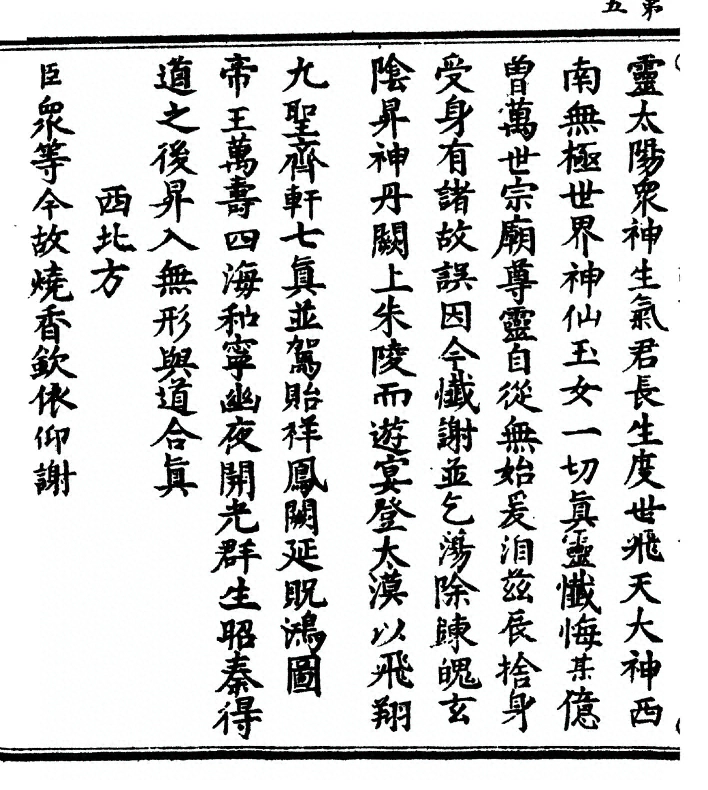 第
五
靈太陽衆神生氣君長生度世飛天大神西
南無極世界神仙玉女一切眞靈懺悔某億
曽萬世宗廟尊靈自從無始爰洎兹辰捨身
受身有諸故誤因今懺謝並乞蕩除竦魄玄
陰昇神丹闕上朱陵而遊宴登太漠以飛翔
九聖齊軒七眞並駕貽祥鳳闕延貺鴻圖
帝王萬壽四海和寧幽夜開光群生昭泰得
道之後昇入無形與道合眞
西北方
臣衆等今故燒香欽依仰謝